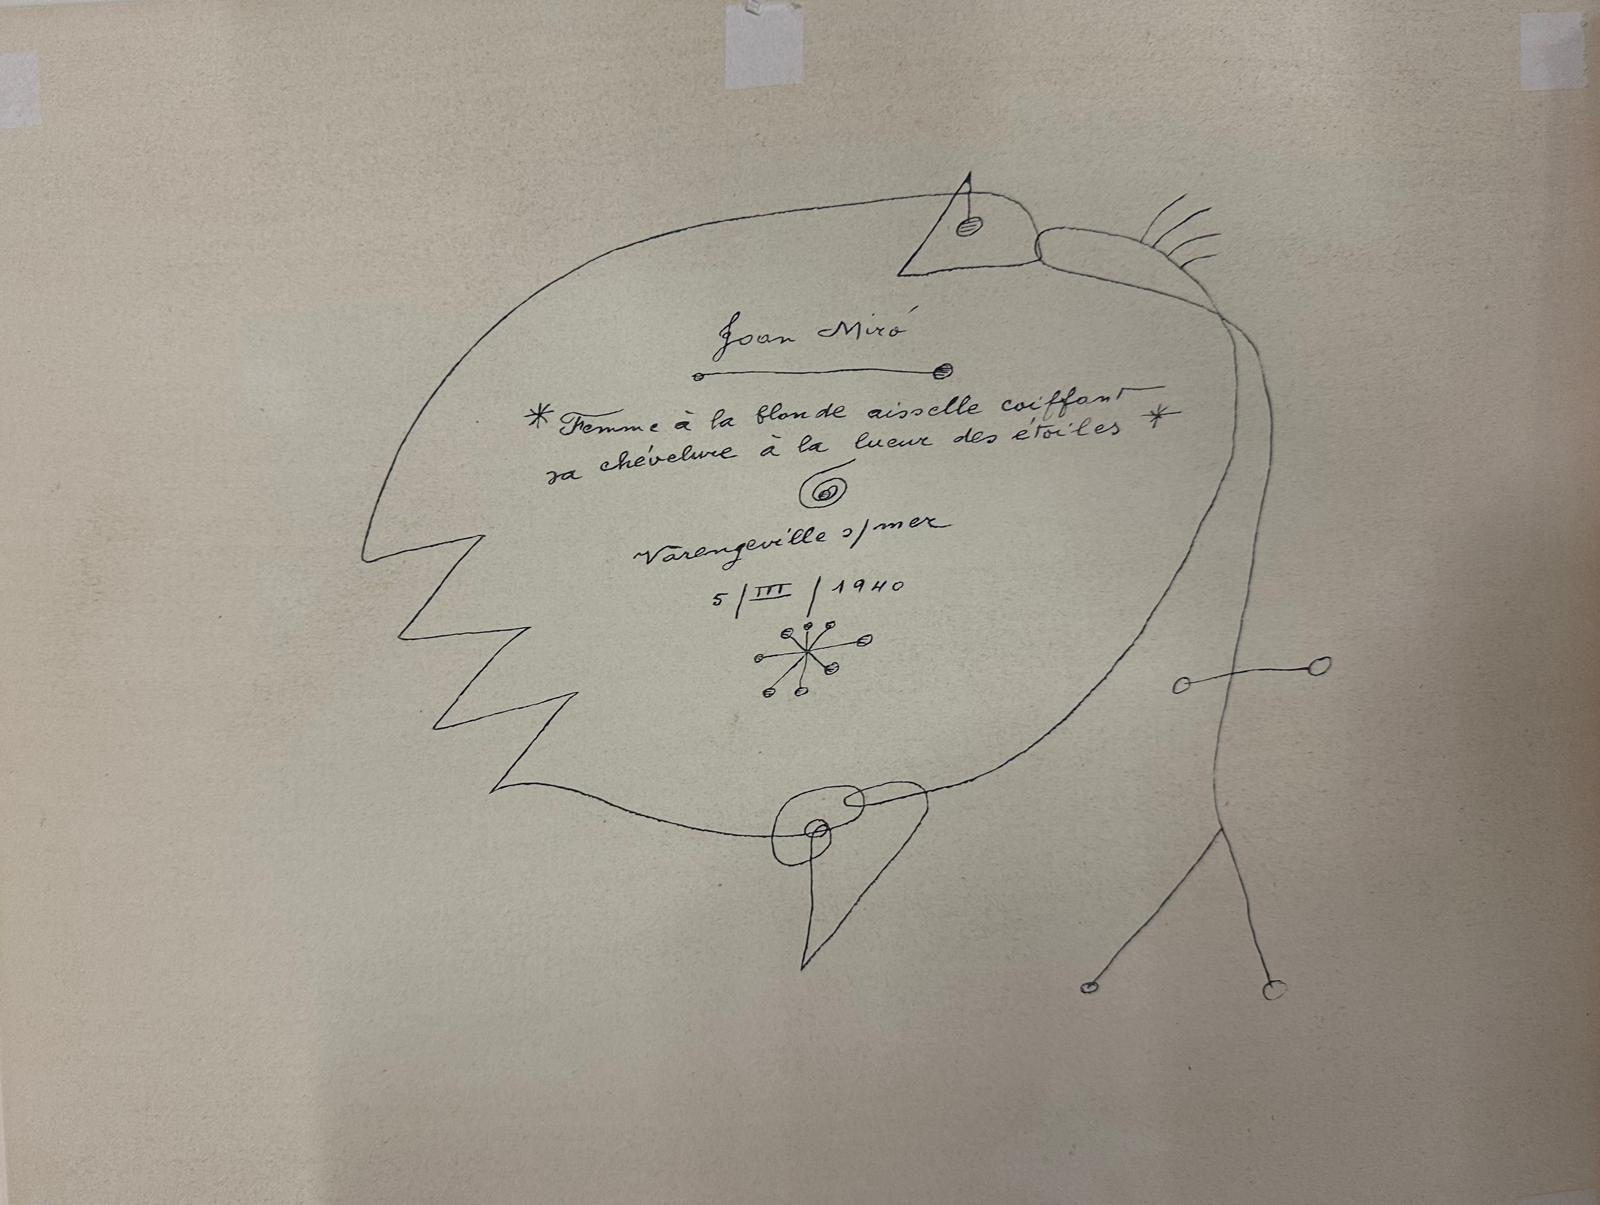 Joan Miró
* Femme à la blonde aisselle coiffant
sa chévelure à la lueur des étoiles *
Varengeville s/mer
5/III/1940